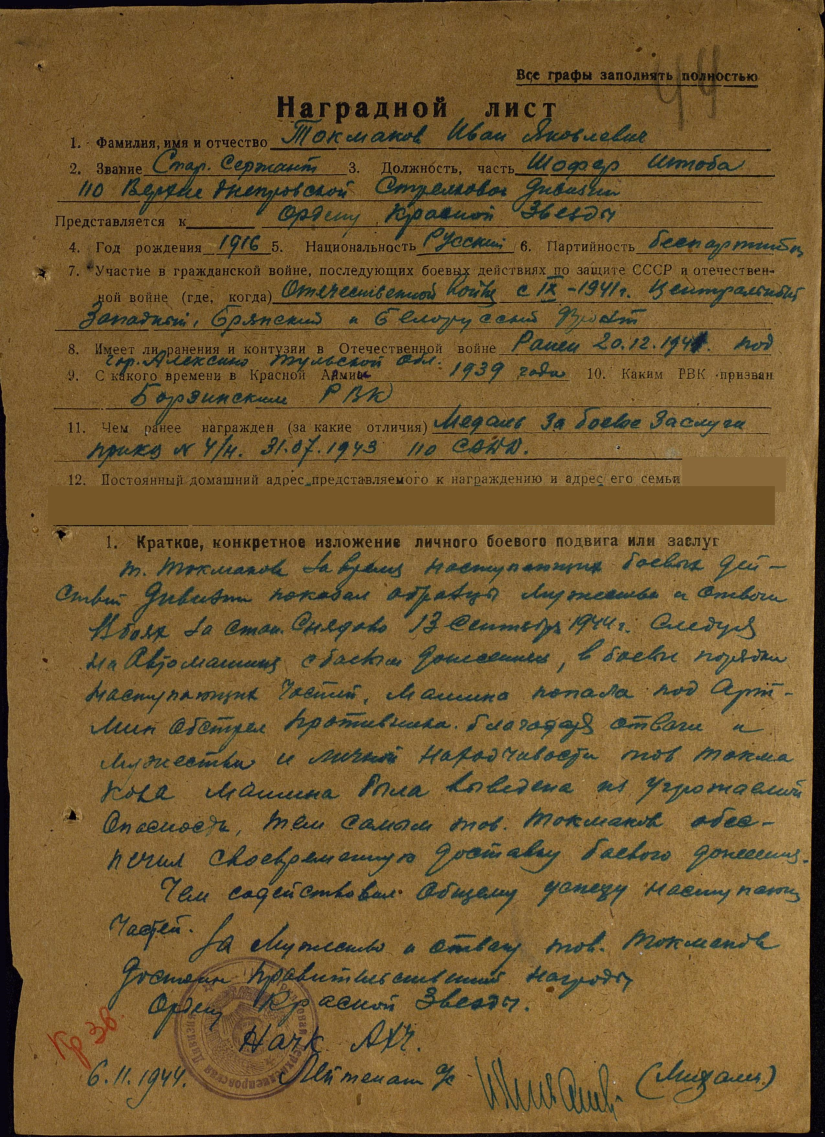 Все графы заполнять полностью
44
Наградной лист
1. Фамилия, имя и отчество Токмаков Иван Яковлевич
2. Звание Стар. Сержант 3. Должность, часть Шофер Штаба
110 Верхне Днепровской Стрелковой Дивизии
Представляется к Ордену Красной Звезды
4. Год рождения 1916 5. Национальность Русский 6. Партийность беспартийн
7. Участие в гражданской войне, последующих боевых действиях по защите СССР и отечествен-
ной войне (где, когда) Отечественной войны с IX-1941г. Центральный
Западный, Брянский и Белорусский фронт
8. Имеет ли ранения и контузии в Отечественной войне Ранен 20.12.1941. под
гор. Алексино Тульской обл.
9. С какого времени в Красной Армии 1939 года 10. Каким РВК призван
Борзинским РВК
11. Чем ранее награжден (за какие отличия) Медаль За боевое Заслуги
приказ N 4/н. 31.07.1943 110
12. Постоянный домашний адрес представляемого к награждению и адрес его семьи
1. Краткое, конкретное изложение личного боевого подвига или заслуг
т. Токмаков За время наступающих боевых дей-
ствий Дивизии показал образцы мужества и отваги
В боях за стан. Снядово 13 Сентября 1944г. Следуя
на Автомашине с боевым донесением, в боевые порядки
наступающих Частей, машина попала под Арт-
мин обстрел противника. благодаря отваги и
мужества и личной находчивости тов Токма
кова машина была выведена из угрожаемой
опасности, тем самым тов. Токмаков обес-
печил своевременную доставку боевого донесения.
Чем содействовал общему успеху наступающ
частей.
За мужество и отвагу тов. Токмаков
достоин правительственной награды
Ордену Красной Звезды.
Кр Зв.
Нач АХЧ.
6.11.1944. Лейтенант а/с (Мизаль.)